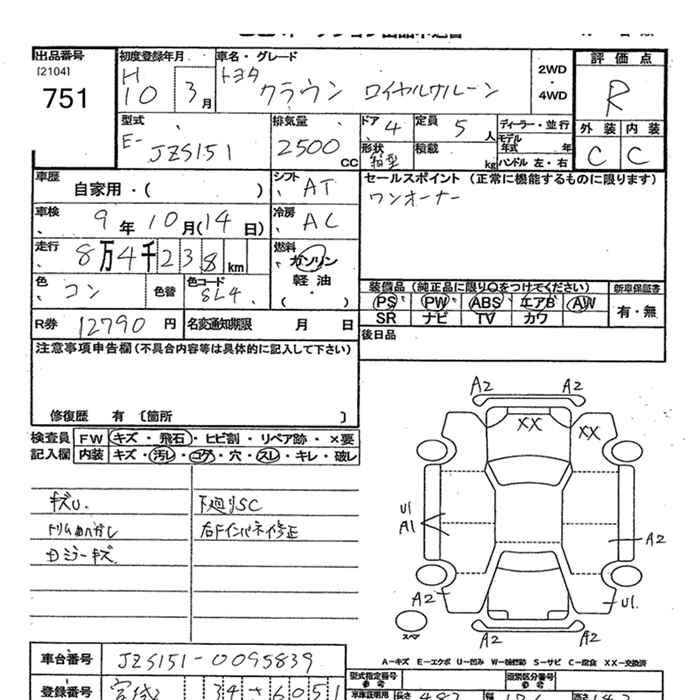 出品番号
[2104]
751
初度登録年月
H
10 3月
車名・グレード
トヨタ
クラウン ロイヤルサルーン
2WD
・
4WD
評価点
R
外装 内装
C C
型式
E-
JZS151
排気量
2500 CC
ドア 4
定員 5 人
ディーラー・並行
モデル年式 年
形状 箱型
積載 kg
ハンドル 左・右
車歴
自家用・( )
シフト AT
セールスポイント (正常に機能するものに限ります)
ワンオーナー
車検 9年10月(14日)
冷房 AC
走行 8万4千238km
燃料
ガソリン
軽油
・( )
色
コン
色替
色コード
8L4
装備品 (純正品に限り○をつけてください)
新車保証書
PS PW ABS エアB AW
SR ナビ TV カワ
有・無
R券 12790 円
名変通知期限 月 日
後日品
注意事項申告欄(不具合内容等は具体的に記入して下さい)
修復歴 有 [箇所 ]
検査員
記入欄
FW キズ・飛石・ヒビ割・リペア跡・×要
内装 キズ・汚レ・コゲ・穴・スレ・キレ・破レ
キズU.
下廻りSC
右Fインパネ修正
ミラーキズ
A2 A2
XX XX
U1
A1
A2
A2
U1.
A2 A2
スペア
A-キズ E-エクボ U-凹み W-補修跡 S-サビ C-腐食 XX-交換済
車台番号 JZS151-0095839
型式指定番号
類別区分番号
登録番号 宮城 34 さ 6051
長さ
幅
高さ